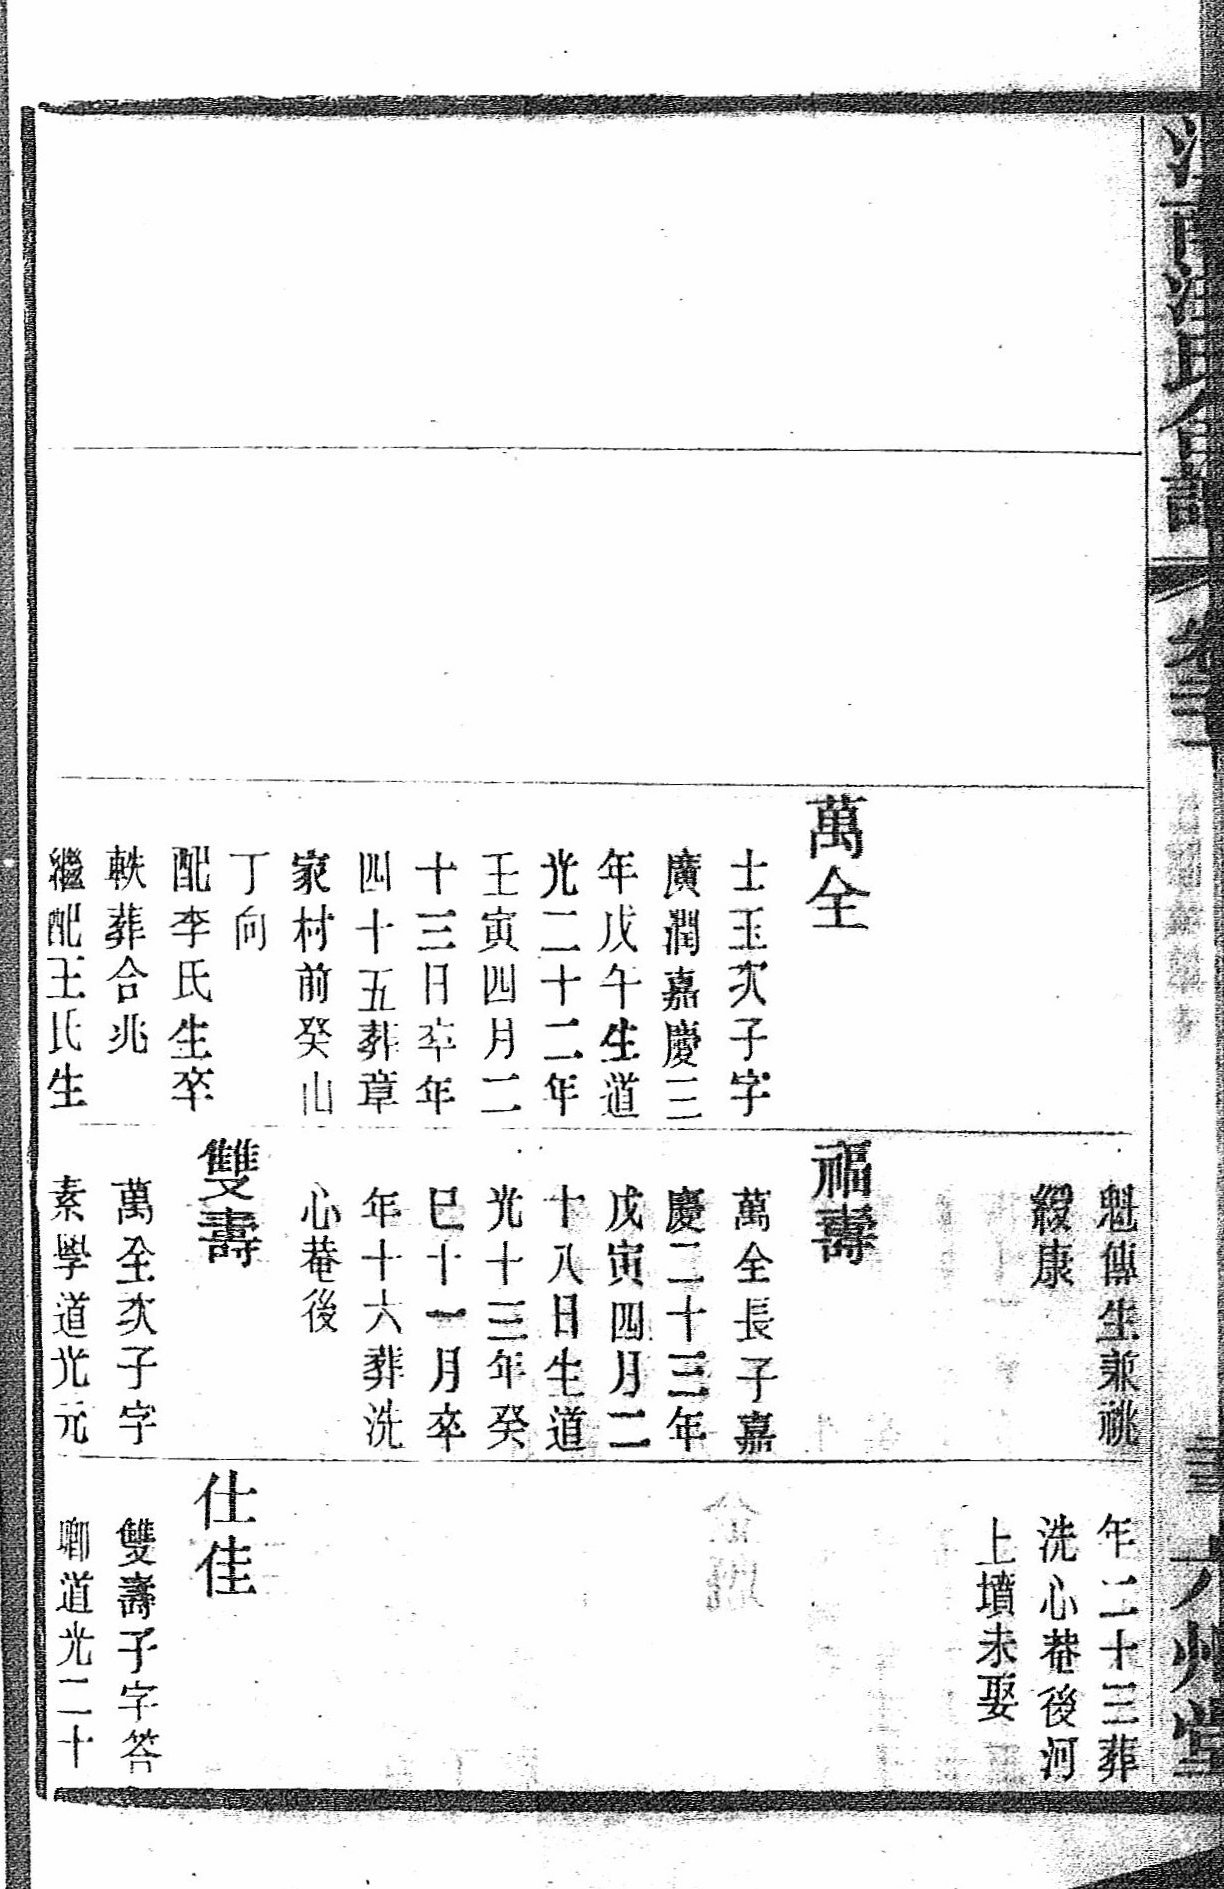 萬全
士玉次子字
廣潤嘉慶三
年戊午生道
光二十二年
壬寅四月二
十三日卒年
四十五葬章
家村前癸山
丁向
配李氏生卒
軼葬合兆
繼配王氏生
魁傳生兼祧
綴康
福壽
萬全長子嘉
慶二十三年
戊寅四月二
十八日生道
光十三年癸
巳十一月卒
年十六葬洗
心菴後
雙壽
萬全次子字
素學道光元
年二十三葬
洗心菴後河
上墳未娶
仕佳
雙壽子字答
卿道光二十